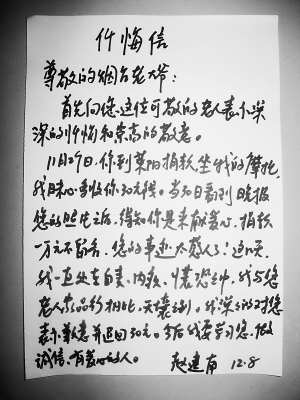 忏悔信
尊敬的烟台老大爷：
首先向您这位可敬的老人表示深
深的忏悔和崇高的敬意。
11月29日，你到莱阳捐款，坐我的摩托，
我昧心多收你30元钱。当30日看到晚报
您的照片之后，得知你是来献爱心，捐款
一万元不留名，您的事迹太感人了！这几天，
我一直处在自责、内疚、惶恐之中，我与您
老人家品行相比，天壤之别。我深深的对您
表示歉意并退回30元。今后我要学习您，做
诚信、有爱心的人。
赵建南 12.8